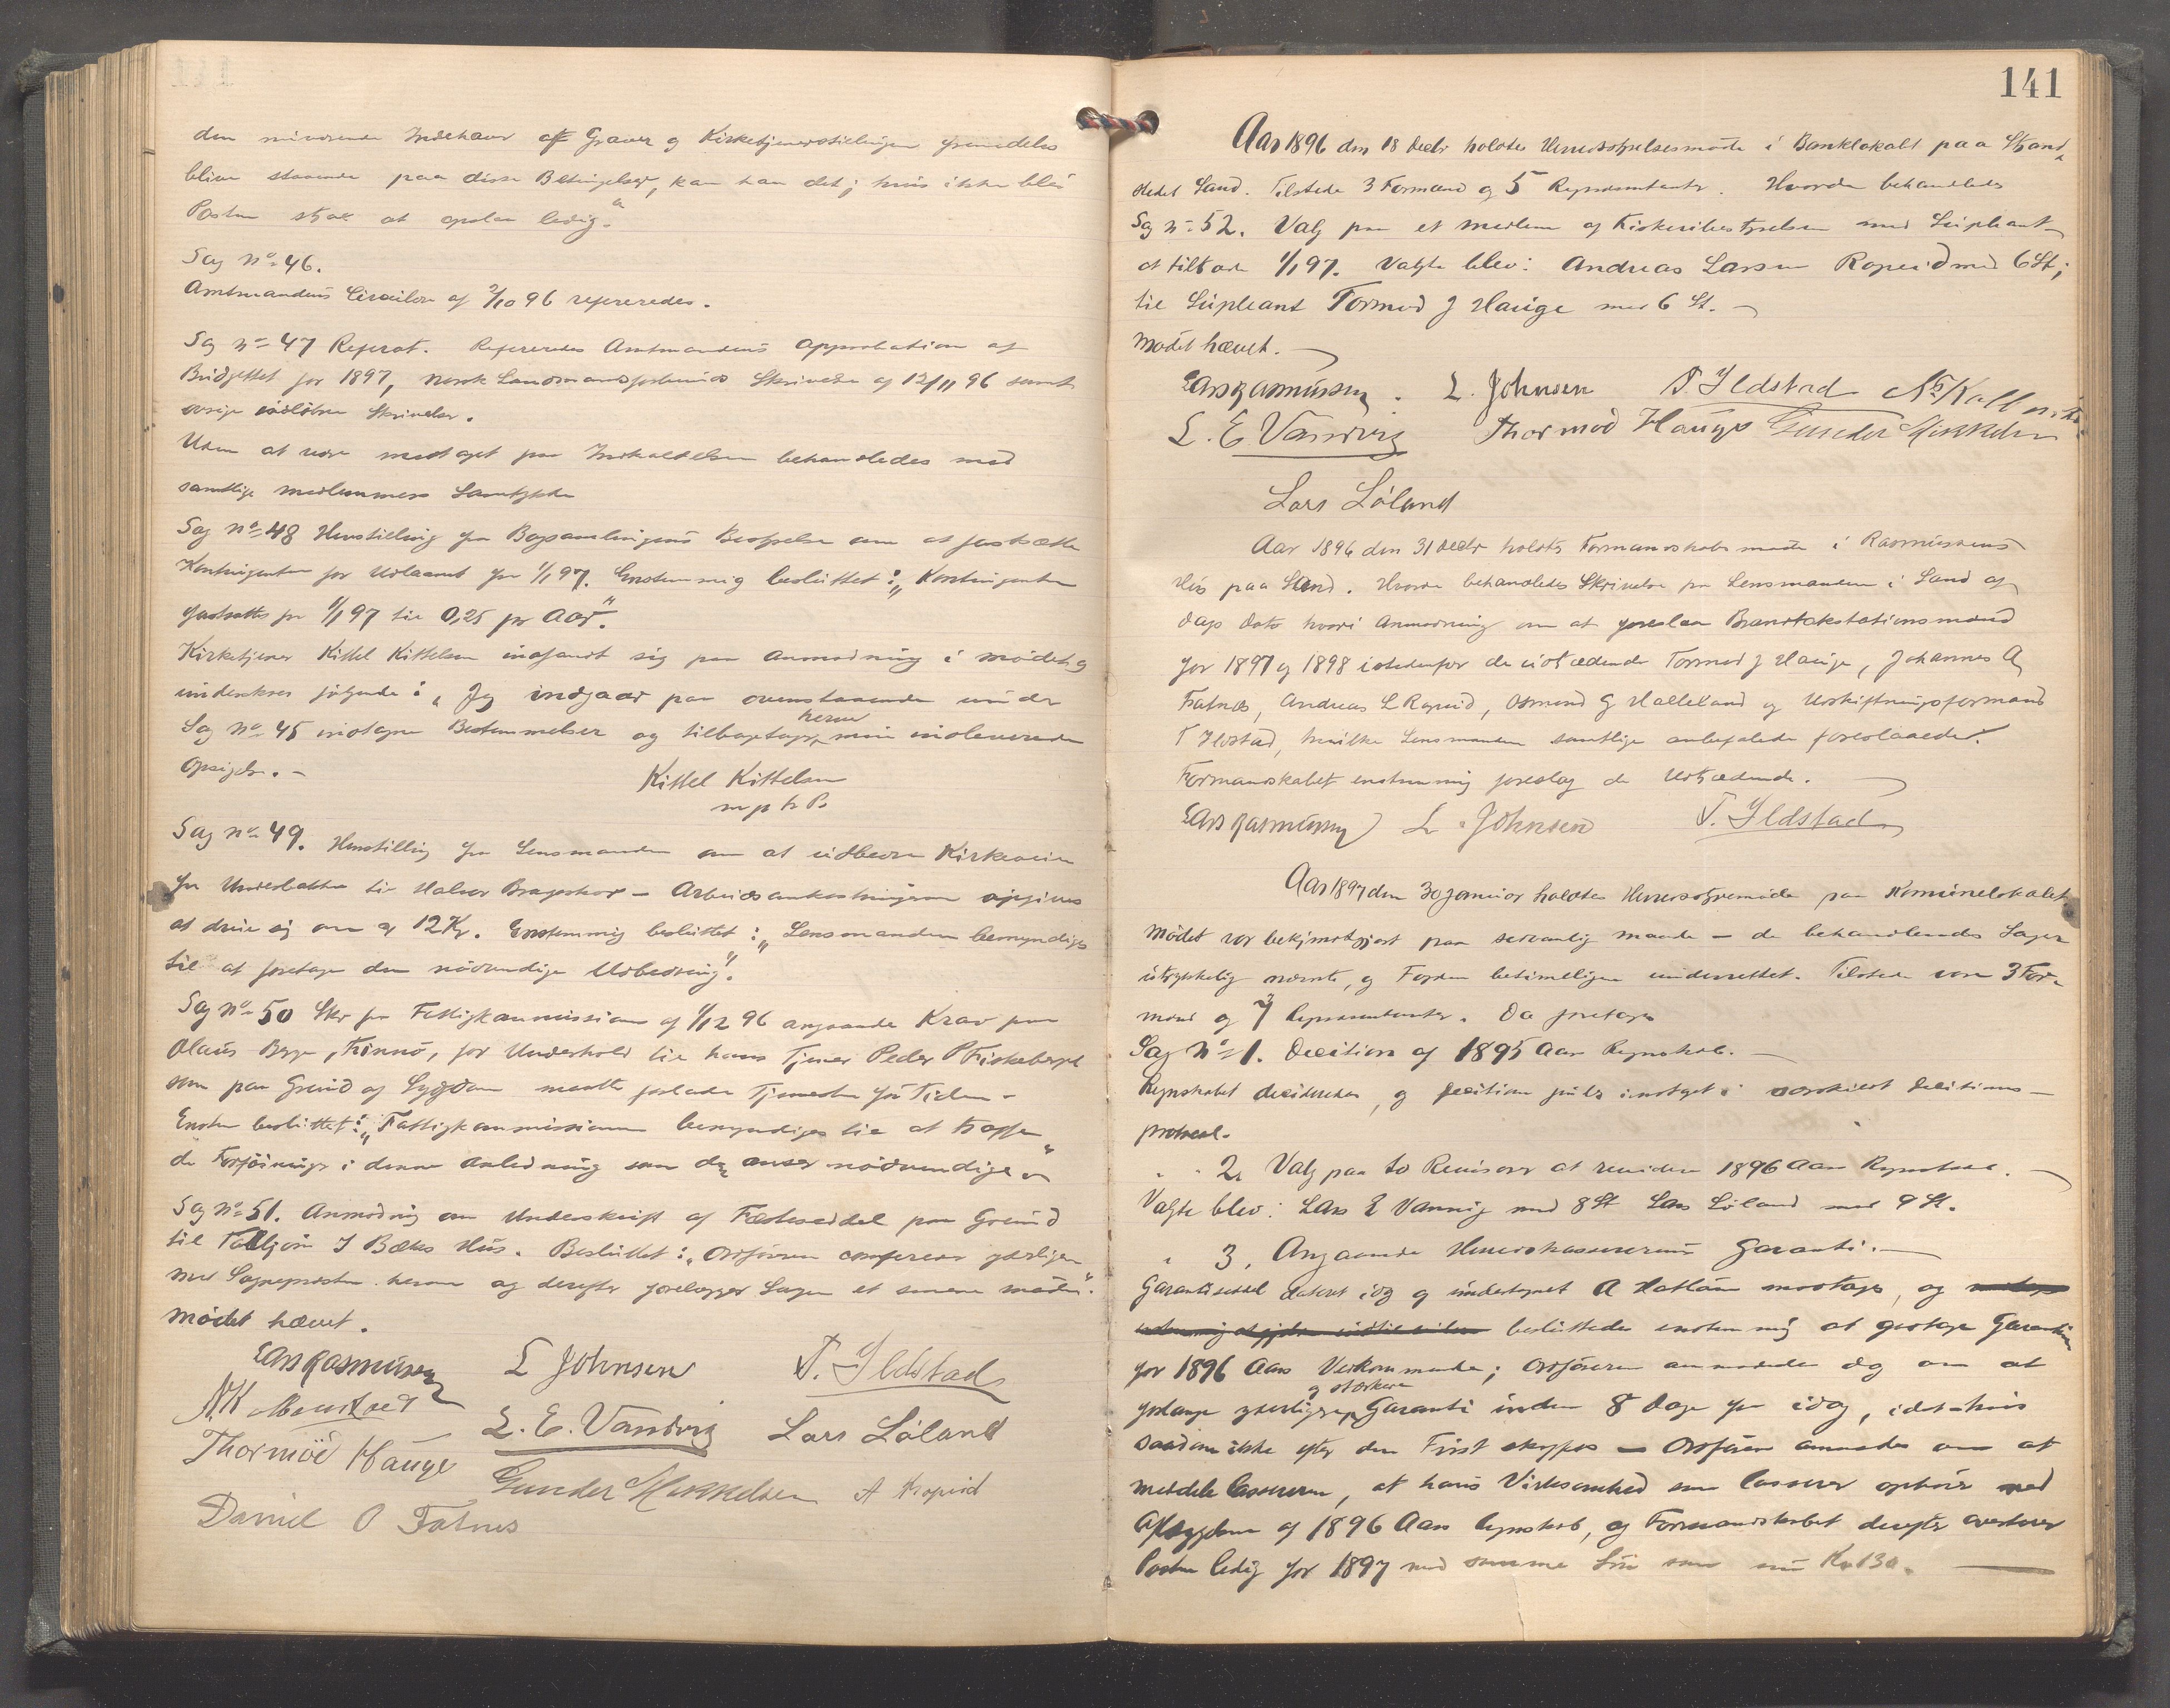 den nuværende Indehaver af Graver og Kirketjenerstillingen fremdeles
blive staaende paa disse Betingelser, kan han det; hvis ikke blir
Posten strax at opslaa ledig."
Sag No 46.
Amtmandens Circulære af 2/10 96 refereredes.
Sag No 47 Referat. Refereredes Amtmandens Approbation af
Budgettet for 1897, norsk Landmandsforbunds Skrivelse af 12/11 96 samt
øvrige indløbne Skrivelser.
Uden at være medtaget paa Indkaldelsen behandledes med
samtlige Medlemmers Samtykke
Sag No 48 Henstilling fra Bogsamlingens Bestyrelse om at fastsætte
Kontingenten for Udlaanet fra 1/1 97. Enstemmig besluttet: „Kontingenten
fastsættes fra 1/1 97 til 0,25 pr Aar".
Kirketjener Kittel Kittelsen indfandt sig paa Anmodning i Mødet og
underskrev følgende: „Jeg indgaar paa ovenstaaende under
Sag No 45 indtagne Bestemmelser og tilbagetager herved min indleverede
Opsigelse. -
Kittel Kittelsen
m p h P.
Sag No 49. Henstilling fra Lensmanden om at udbedre Kirkeveien
fra Underbakken til Halvor - Arbeidsomkostningerne opgives
at dreie sig om 12 Kr. Enstemmig besluttet: „Lensmanden bemyndiges
til at foretage den nødvendige Udbedring".
Sag No 50 Skr fra Fattigkommissionen af 1/12 96 angaaende Krav fra
Olaus Berge, Finnø, for Underhold til hans Tjener Peder P Fiskeberget
som paa Grund af Sygdom maatte forlade Tjenesten før Tiden -
Enstem besluttet: „Fattigkommissionen bemyndiges til at træffe
de Forføininger i denne Anledning som den anser nødvendige"
Sag No 51. Anmodning om Underskrift af Fæsteseddel paa Grund
til Torbjørn J Bækes Hus. Besluttet: „Ordføreren confererer yderligere
med Sognepræsten herom og derefter forelægger Sagen et senere møde".
Mødet hævet.
Lars Rasmussen L Johnsen T. Ildstad
N K Mæustad L. E. Vandvig Lars Løland
Thormod Hauge Gunder Mikkelsen A Ropeid
Daniel O Fatnes
141
Aar 1896 den 18 Decbr holdtes Herredsstyrelsesmøde i Banklokalet paa Strand-
stedet Sand. Tilstede 3 Formænd og 5 Repræsentanter. Hvorda behandledes
Sag No 52. Valg paa et medlem af Fiskeribestyrelsen med Supleant
at tiltræde 1/1 97. Valgte blev: Andreas Larsen Ropeid med 6 St;
til Supleant Tormod J Hauge med 6 St. -
Mødet hævet. -
Lars Rasmussen. L. Johnsen T. Ildstad
L. E Vandvig Thormod Hauge Gunder Mikkelsen
Lars Løland
Aar 1896 den 31 Decbr holdtes Formandskabsmøde i Rasmussens
Hus paa Sand. Hvorda behandledes Skrivelse fra Lensmanden i Sand af
dags Dato hvori Anmodning om at foreslaa Brandtakstationsmænd
for 1897 og 1898 istedenfor de udtrædende Tormod J Hauge, Johannes A
Fatnes, Andreas L Ropeid, Osmund G Halleland og Udskiftningsformand
T Ildstad, hvilke Lensmanden samtlige anbefalede foreslaaede.
Formandskabet enstemmig foreslog de Udtrædende.
Lars Rasmussen L. Johnsen T. Ildstad
Aar 1897 den 30 Januar holdtes Herredsstyremøde paa Komunelokalet
Mødet var bekjendtgjort paa sedvanlig maade - de behandlendes Sager
udtrykkelig nævnte, og Fogden betimeligen underrettet. Tilstede vare 3 For-
mænd og 7 Repræsentanter. Da foretages
Sag No 1. Decition af 1895 Aars Regnskab. -
Regnskabet decideredes, og Decition findes indtaget i særskildt Decitions-
protocol.
" " 2, Valg paa to Revisorer at revidere 1896 Aars Regnskab. -
Valgte blev: Lars E Vannvig med 8 St Lars Løland med 9 St.
" 3, Angaaende Herredskassererens Garanti. -
Garantiseddel dateret idag og undertegnet A Hatløen modtoges, og
besluttedes enstemmig at godtage Garantien
for 1896 Aars Vedkommende; Ordføreren anmodedes dog om at
forlange yderligere og stærkere Garanti inden 8 Dage fra idag, idet - hvis
saadan ikke efter den Frist skaffes - Ordføreren anmodes om at
meddele Cassereren, at hans Virksomhed som Casserer ophører med
Aflæggelsen af 1896 Aars Regnskab, og Formandskabet derefter averterer
Posten ledig for 1897 med samme Løn som nu Kr 130. -